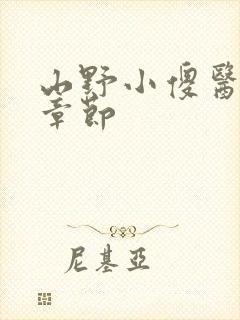 山野小傻醫
章節
尼基亞